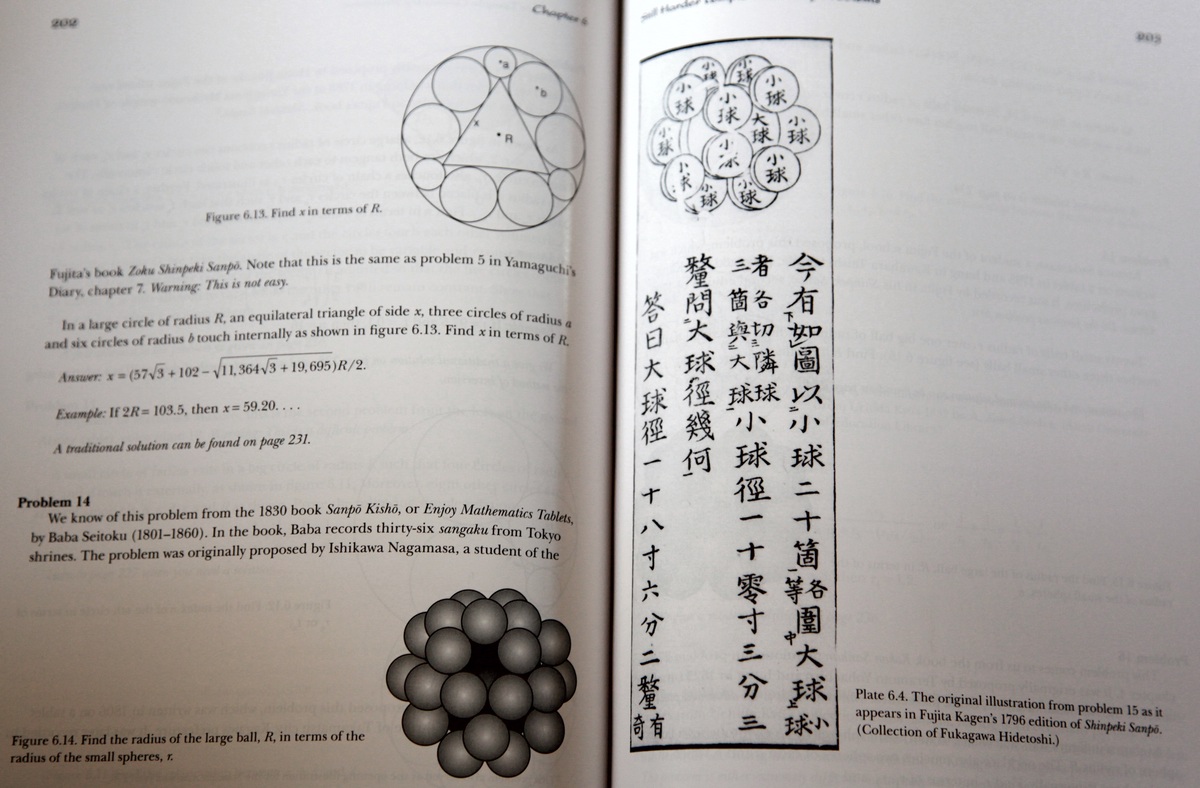 202
Chapter 6
a
b
x
R
Figure 6.13. Find x in terms of R.
Fujita's book Zoku Shinpeki Sanpō. Note that this is the same as problem 5 in Yamaguchi's
Diary, chapter 7. Warning: This is not easy.
In a large circle of radius R, an equilateral triangle of side x, three circles of radius a
and six circles of radius b touch internally as shown in figure 6.13. Find x in terms of R.
Answer: x = (57√3 + 102 − √(11,364√3 + 19,695))R/2.
Example: If 2R = 103.5, then x = 59.20. . . .
A traditional solution can be found on page 231.
Problem 14
We know of this problem from the 1830 book Sanpō Kishō, or Enjoy Mathematics Tablets,
by Baba Seitoku (1801–1860). In the book, Baba records thirty-six sangaku from Tokyo
shrines. The problem was originally proposed by Ishikawa Nagamasa, a student of the
Figure 6.14. Find the radius of the large ball, R, in terms of the
radius of the small spheres, r.
Still Harder
203
小球
小球
小球
小球
小球
大球
小球
小球
小球
小球
小球
小球
今有如圖以小球二十箇各等圍大球小球
者各切隣球三箇與大球小球徑一十零寸三分三
釐問大球徑幾何
答曰大球徑一十八寸六分二釐有奇
Plate 6.4. The original illustration from problem 15 as it
appears in Fujita Kagen's 1796 edition of Shinpeki Sanpō.
(Collection of Fukagawa Hidetoshi.)